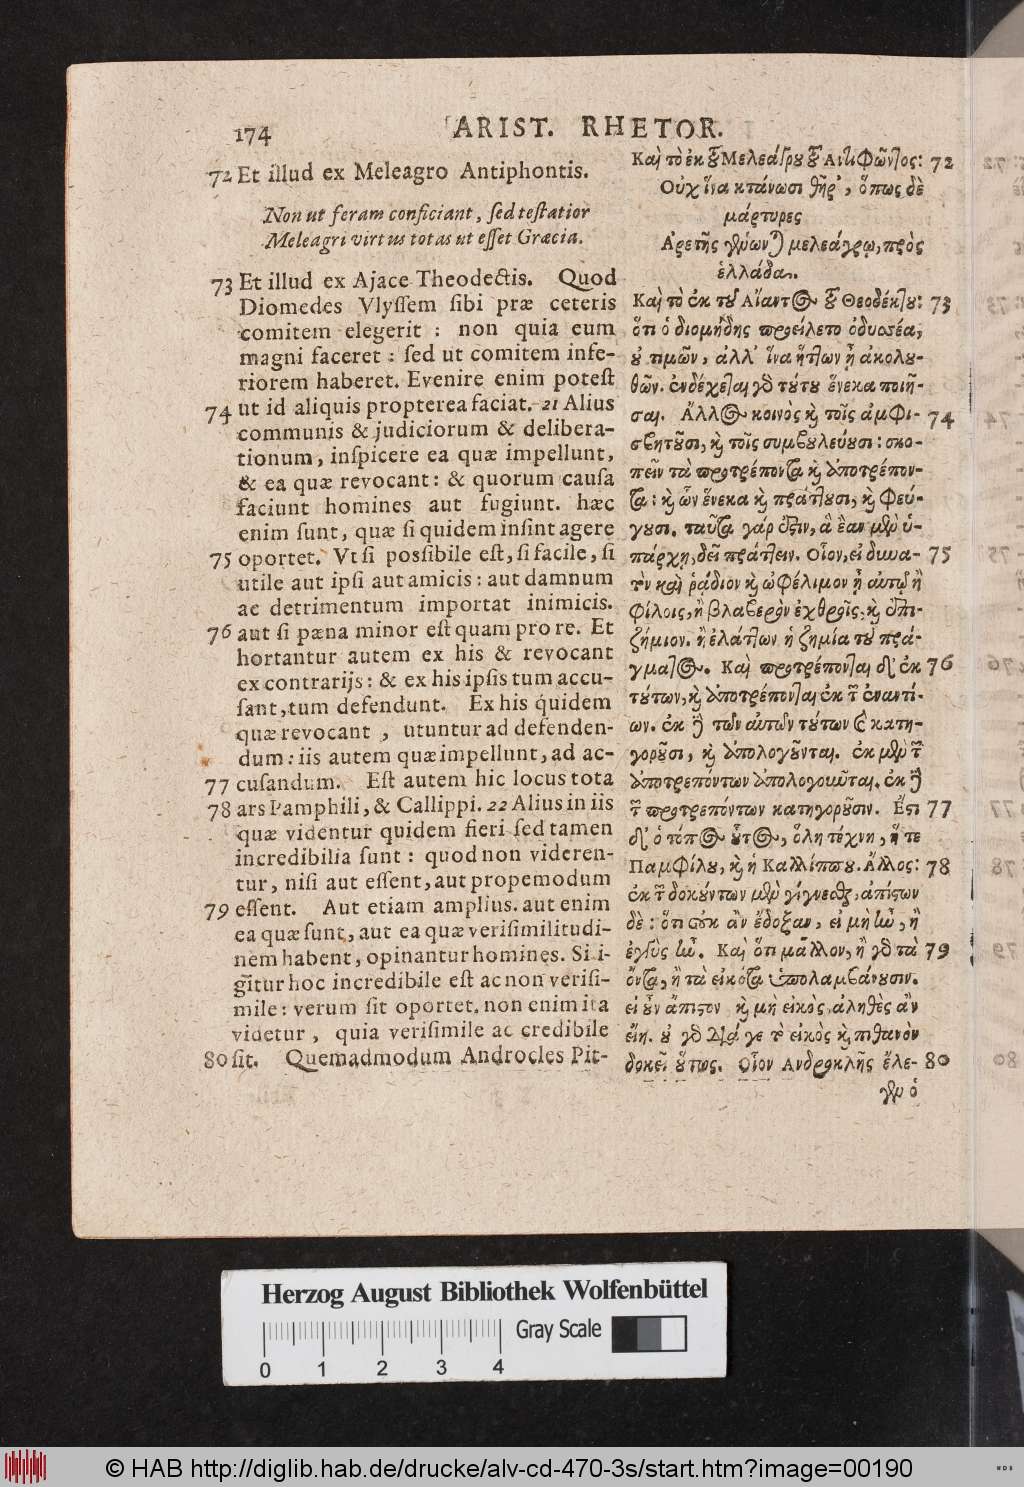 174 ARIST. RHETOR.
72 Et illud ex Meleagro Antiphontis.
Non ut feram conficiant, sed testatior
Meleagri virtus totas ut esset Græcia.
73 Et illud ex Ajace Theodectis. Quod
Diomedes Vlyssem sibi præ ceteris
comitem elegerit : non quia eum
magni faceret : sed ut comitem infe-
riorem haberet. Evenire enim potest
74 ut id aliquis propterea faciat. 21 Alius
communis & judiciorum & delibera-
tionum, inspicere ea quæ impellunt,
& ea quæ revocant : & quorum causa
faciunt homines aut fugiunt. hæc
enim sunt, quæ si quidem insint agere
75 oportet. Vt si possibile est, si facile, si
utile aut ipsi aut amicis : aut damnum
ac detrimentum importat inimicis.
76 aut si pæna minor est quam pro re. Et
hortantur autem ex his & revocant
ex contrarijs : & ex his ipsis tum accu-
sant, tum defendunt. Ex his quidem
quæ revocant , utuntur ad defenden-
dum : iis autem quæ impellunt, ad ac-
77 cusandum. Est autem hic locus tota
78 ars Pamphili, & Callippi. 22 Alius in iis
quæ videntur quidem fieri sed tamen
incredibilia sunt : quod non videren-
tur, nisi aut essent, aut propemodum
79 essent. Aut etiam amplius. aut enim
ea quæ sunt, aut ea quæ verisimilitudi-
nem habent, opinantur homines. Si i-
gitur hoc incredibile est ac non verisi-
mile : verum sit oportet, non enim ita
videtur , quia verisimile ac credibile
80 sit. Quemadmodum Androcles Pit-
Καὶ τὸ ἐκ τοῦ Μελεάγρου τοῦ Ἀντιφῶντος : 72
Οὐχ ἵνα κτάνωσι θῆρ', ὅπως δὲ
μάρτυρες
Ἀρετῆς γένωνται μελεάγρῳ, πρὸς
ἑλλάδα.
Καὶ τὸ ἐκ τοῦ Αἴαντος τοῦ Θεοδέκτου : 73
ὅτι ὁ διομήδης προείλετο ὀδυσσέα,
οὐ τιμῶν, ἀλλ' ἵνα ἥττων ᾖ ἀκολου-
θῶν. ἐνδέχεται γὰρ τούτου ἕνεκα ποιῆ-
σαι. Ἄλλος κοινὸς καὶ τοῖς ἀμφι- 74
σβητοῦσι, καὶ τοῖς συμβουλεύουσι : σκο-
πεῖν τὰ προτρέποντα καὶ ἀποτρέπον-
τα : καὶ ὧν ἕνεκα καὶ πράττουσι, καὶ φεύ-
γουσι. ταῦτα γάρ ἐστιν, ἃ ἐὰν μὲν ὑ-
πάρχῃ, δεῖ πράττειν. Οἷον, εἰ δυνα- 75
τὸν καὶ ῥᾴδιον καὶ ὠφέλιμον ἢ αὐτῷ ἢ
φίλοις, ἢ βλαβερὸν ἐχθροῖς, καὶ ἐπι-
ζήμιον. ἢ ἐλάττων ἡ ζημία τοῦ πρά-
γματος. Καὶ προτρέπονται δ' ἐκ 76
τούτων, καὶ ἀποτρέπονται ἐκ τῶν ἐναντί-
ων. ἐκ δὲ τῶν αὐτῶν τούτων καὶ κατη-
γοροῦσι, καὶ ἀπολογοῦνται. ἐκ μὲν τῶν
ἀποτρεπόντων ἀπολογοῦνται. ἐκ δὲ
τῶν προτρεπόντων κατηγοροῦσιν. Ἔστι 77
δ' ὁ τόπος οὗτος, ὅλη τέχνη, ἥ τε
Παμφίλου, καὶ ἡ Καλλίππου. Ἄλλος : 78
ἐκ τῶν δοκούντων μὲν γίγνεσθαι, ἀπίστων
δὲ : ὅτι οὐκ ἂν ἔδοξαν, εἰ μὴ ἦν, ἢ
ἐγγὺς ἦν. Καὶ ὅτι μᾶλλον, ἢ γὰρ τὰ 79
ὄντα, ἢ τὰ εἰκότα ὑπολαμβάνουσιν.
εἰ οὖν ἄπιστον καὶ μὴ εἰκὸς, ἀληθὲς ἂν
εἴη. οὐ γὰρ διά γε τὸ εἰκὸς καὶ πιθανὸν
δοκεῖ οὕτως. Οἷον Ἀνδροκλῆς ἔλε- 80
γεν ὁ
Herzog August Bibliothek Wolfenbüttel
Gray Scale
0 1 2 3 4
© HAB http://diglib.hab.de/drucke/alv-cd-470-3s/start.htm?image=00190